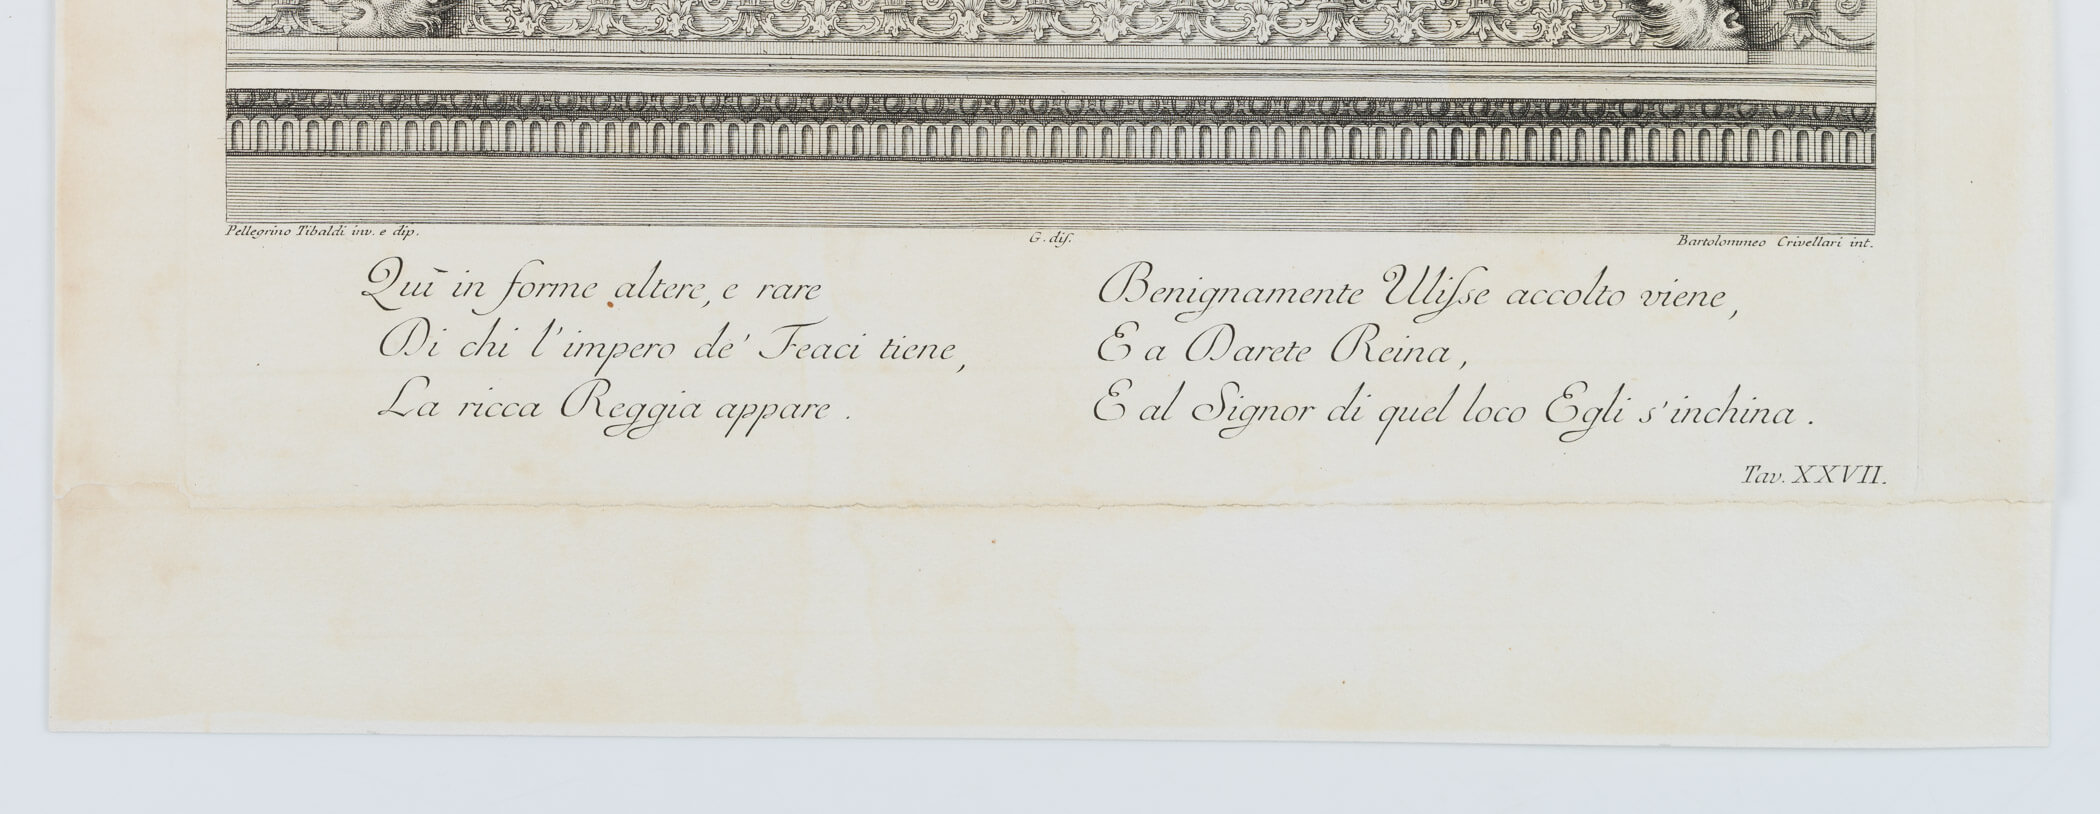 Pellegrino Tibaldi inv. e dip.
G. diſ.
Bartolommeo Crivellari int.
Quì in forme altere, e rare
Di chi l'impero de' Feaci tiene,
La ricca Reggia appare.
Benignamente Uliſse accolto viene,
E a Darete Reina,
E al Signor di quel loco Egli s'inchina.
Tav. XXVII.